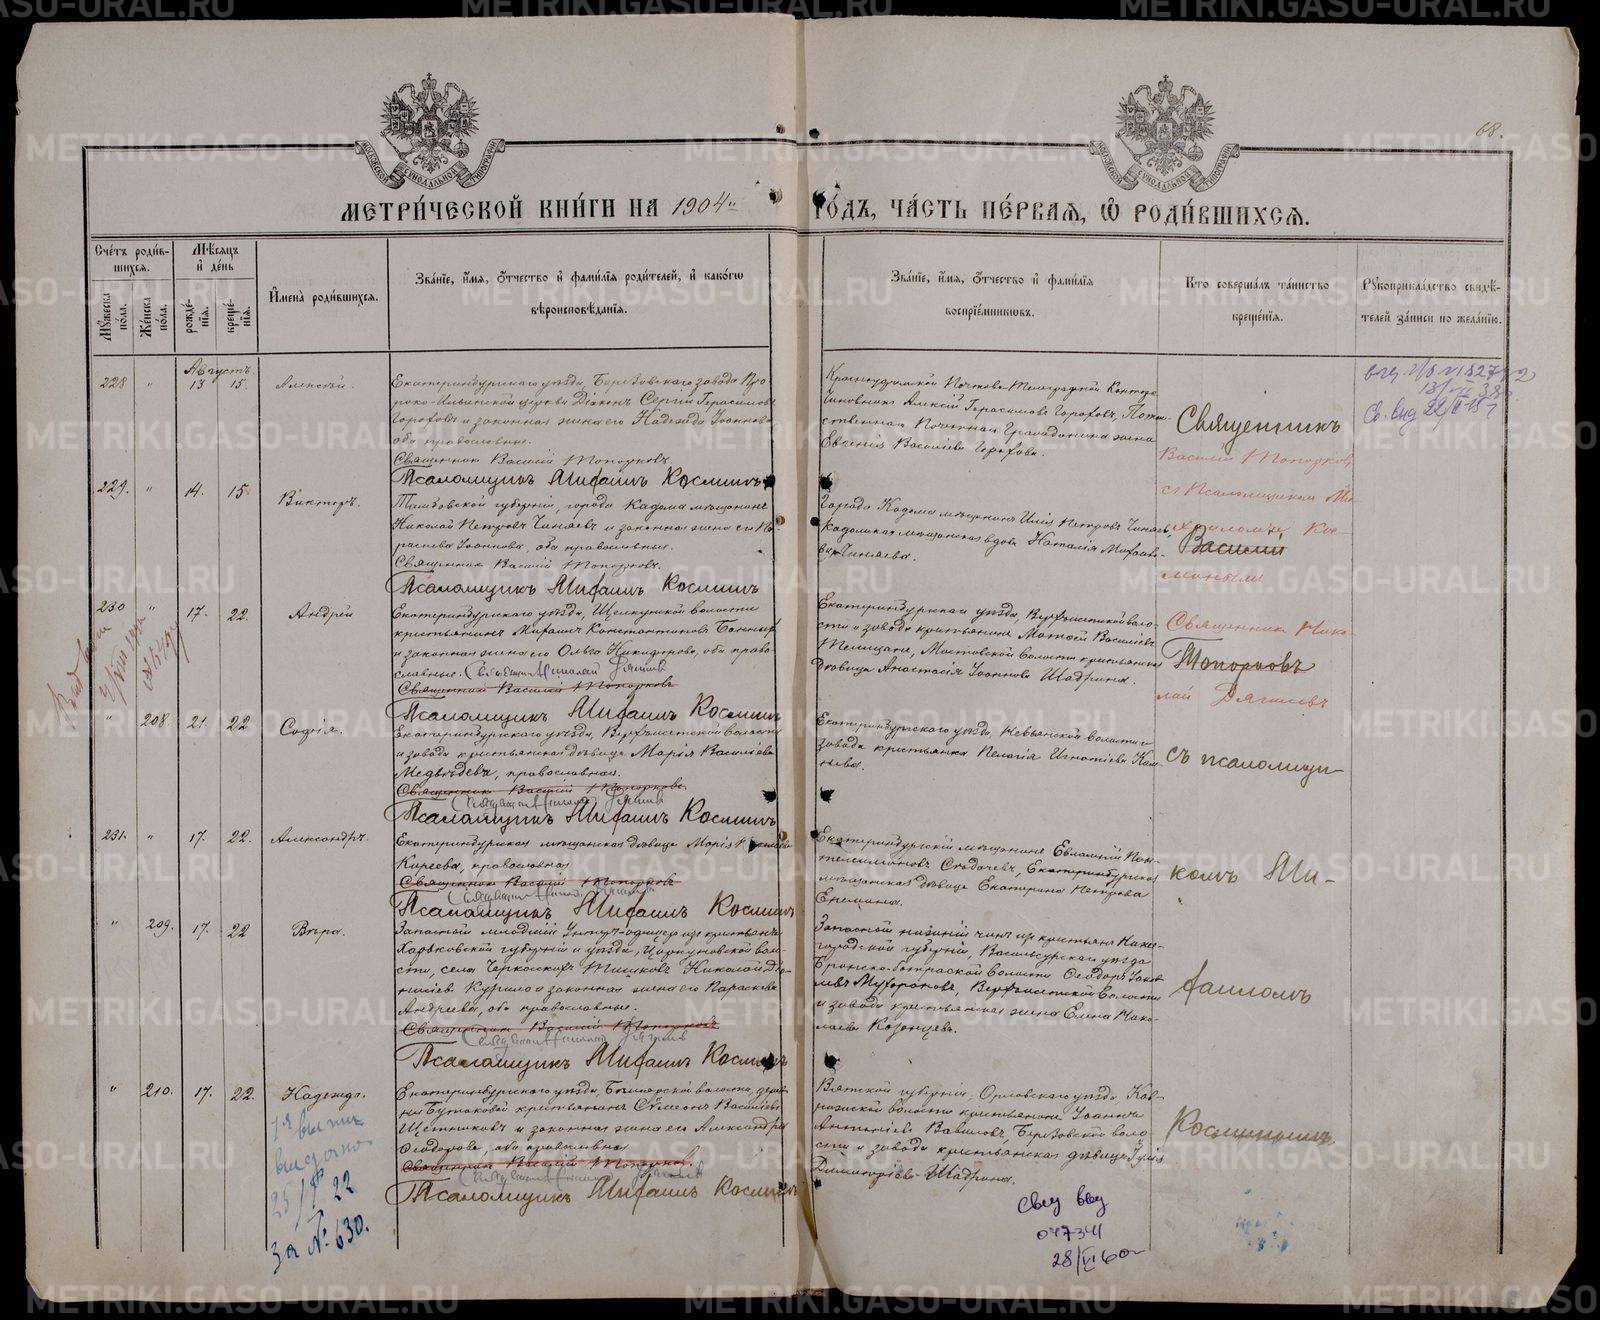 68.
МЕТРИ́ЧЕСКОЙ КНИ́ГИ НА 1904
ГО́ДЪ, ЧА́СТЬ ПЕ́РВАѦ, Ѡ҆ РОДИ́ВШИХСѦ.
Сче́тъ роди́в-
шихсѧ.
Мѹжеска по́ла.
Же́нска по́ла.
Мѣ́сѧцъ
и҆ де́нь
рожде́-
нїѧ.
креще́-
нїѧ.
И҆мена̀ роди́вшихсѧ.
Зва́нїе, и҆́мѧ, ѻ҆́тчество и҆ фами́лїѧ роди́телей, и҆ како́гѡ
вѣроисповѣ́данїѧ.
Зва́нїе, и҆́мѧ, ѻ҆́тчество и҆ фами́лїѧ
воспрїе́мниковъ.
Кто̀ соверша́лъ та́инство
креще́нїѧ.
Рѹкоприкла́дство свидѣ́-
телей за́писи по жела́нїю.
Августъ.
228 " 13 15. Алексѣй.
Екатеринбургскаго уѣзда, Березовскаго завода Про-
роко-Ильинской церкви Діаконъ Сергій Герасимовъ
Горофовъ и законная жена его Надежда Іоаннова
оба православные.
Священникъ Василій Топорковъ
Псаломщикъ Михаилъ Косминъ
Красноуфимской Почтово-Телеграфной Конторы
Чиновникъ Алексій Герасимовъ Горофовъ, Пото-
ственная Почетная Гражданина жена
Евгенія Васильева Горофова.
229. " 14. 15 Викторъ.
Тамбовской губерніи, города Кадома мѣщанинъ
Николай Петровъ Чиняевъ и законная жена его Па-
раскева Іоаннова, оба православные.
Священникъ Василій Топорковъ.
Псаломщикъ Михаилъ Косминъ
Города Кадома мѣщанинъ Илія Петровъ Чиняевъ,
Кадомская мѣщанская вдова Наталія Михаило-
ва Чиняева.
230 " 17. 22. Андрей
Екатеринбургскаго уѣзда, Щелкунской волости
крестьянинъ Михаилъ Константиновъ
и законная жена его Ольга Никифорова, оба право-
славные. Священникъ Николай Дягилевъ
Священникъ Василій Топорковъ
Псаломщикъ Михаилъ Косминъ
Екатеринбургскаго уѣзда, Верхъисетской воло-
сти и завода крестьянинъ Матѳей Васильевъ
Телицинъ, Мостовской волости крестьянская
дѣвица Анастасія Іоаннова Шадрина.
" 208. 21. 22 Софія.
Екатеринбургскаго уѣзда, Верхъисетской волости
и завода крестьянская дѣвица Марія Васильева
Медвѣдева, православная.
Священникъ Василій Топорковъ.
Священникъ Николай Дягилевъ
Псаломщикъ Михаилъ Косминъ
Екатеринбургскаго уѣзда, Невьянской волости и
завода крестьянка Пелагія Игнатіева
231. " 17. 22. Александръ.
Екатеринбургская мѣщанская дѣвица Марія
Кинеева, православная
Священникъ Василій Топорковъ
Священникъ Николай Дягилевъ
Псаломщикъ Михаилъ Косминъ
Екатеринбургскій мѣщанинъ Евлампій Пан-
телеимоновъ Сындачевъ, Екатеринбургская
мѣщанская дѣвица Екатерина Петрова
Еремина.
" 209. 17. 22 Вѣра.
Запасный младшій Унтеръ-офицеръ изъ крестьянъ
Харьковской губерніи и уѣзда, Циркуновской воло-
сти, села Черкасскихъ Тишковъ Николай Діо-
нисіевъ Курило и законная жена его Параскева
Андреева, оба православные.
Священникъ Василій Топорковъ
Священникъ Николай Дягилевъ
Псаломщикъ Михаилъ Косминъ
Запасный нижній чинъ изъ крестьянъ Ниже-
городской губерніи, Васильсурскаго уѣзда
волости Ѳеодоръ Яков-
левъ Мухоровъ, Верхъисетской волости
и завода крестьянская жена Елена Нико-
лаева Козонцева.
" 210. 17. 22. Надежда.
Екатеринбургскаго уѣзда, волости, дерев-
ни Бутаковой крестьянинъ Сѵмеонъ Васильевъ
Щетниковъ и законная жена его Александра
Ѳеодорова, оба православные
Священникъ Василій Топорковъ.
Священникъ Николай Дягилевъ
Псаломщикъ Михаилъ Косминъ
Вятской губерніи, Орловскаго уѣзда
волости крестьянинъ Іоаннъ
Антоніевъ Вавиловъ, Березовской воло-
сти и завода крестьянская дѣвица Юлія
Димитріева Шадрина.
Священникъ
Василій Топорковъ
съ Псаломщикомъ Ми-
хаиломъ Кос-
Василій
минымъ
Священникъ Нико-
Топорковъ
лай Дягилевъ
съ псаломщи-
комъ Ми-
хаиломъ
Косминымъ
выписи
выдано
25/ 22
за № 630.
047341
28/VI 60